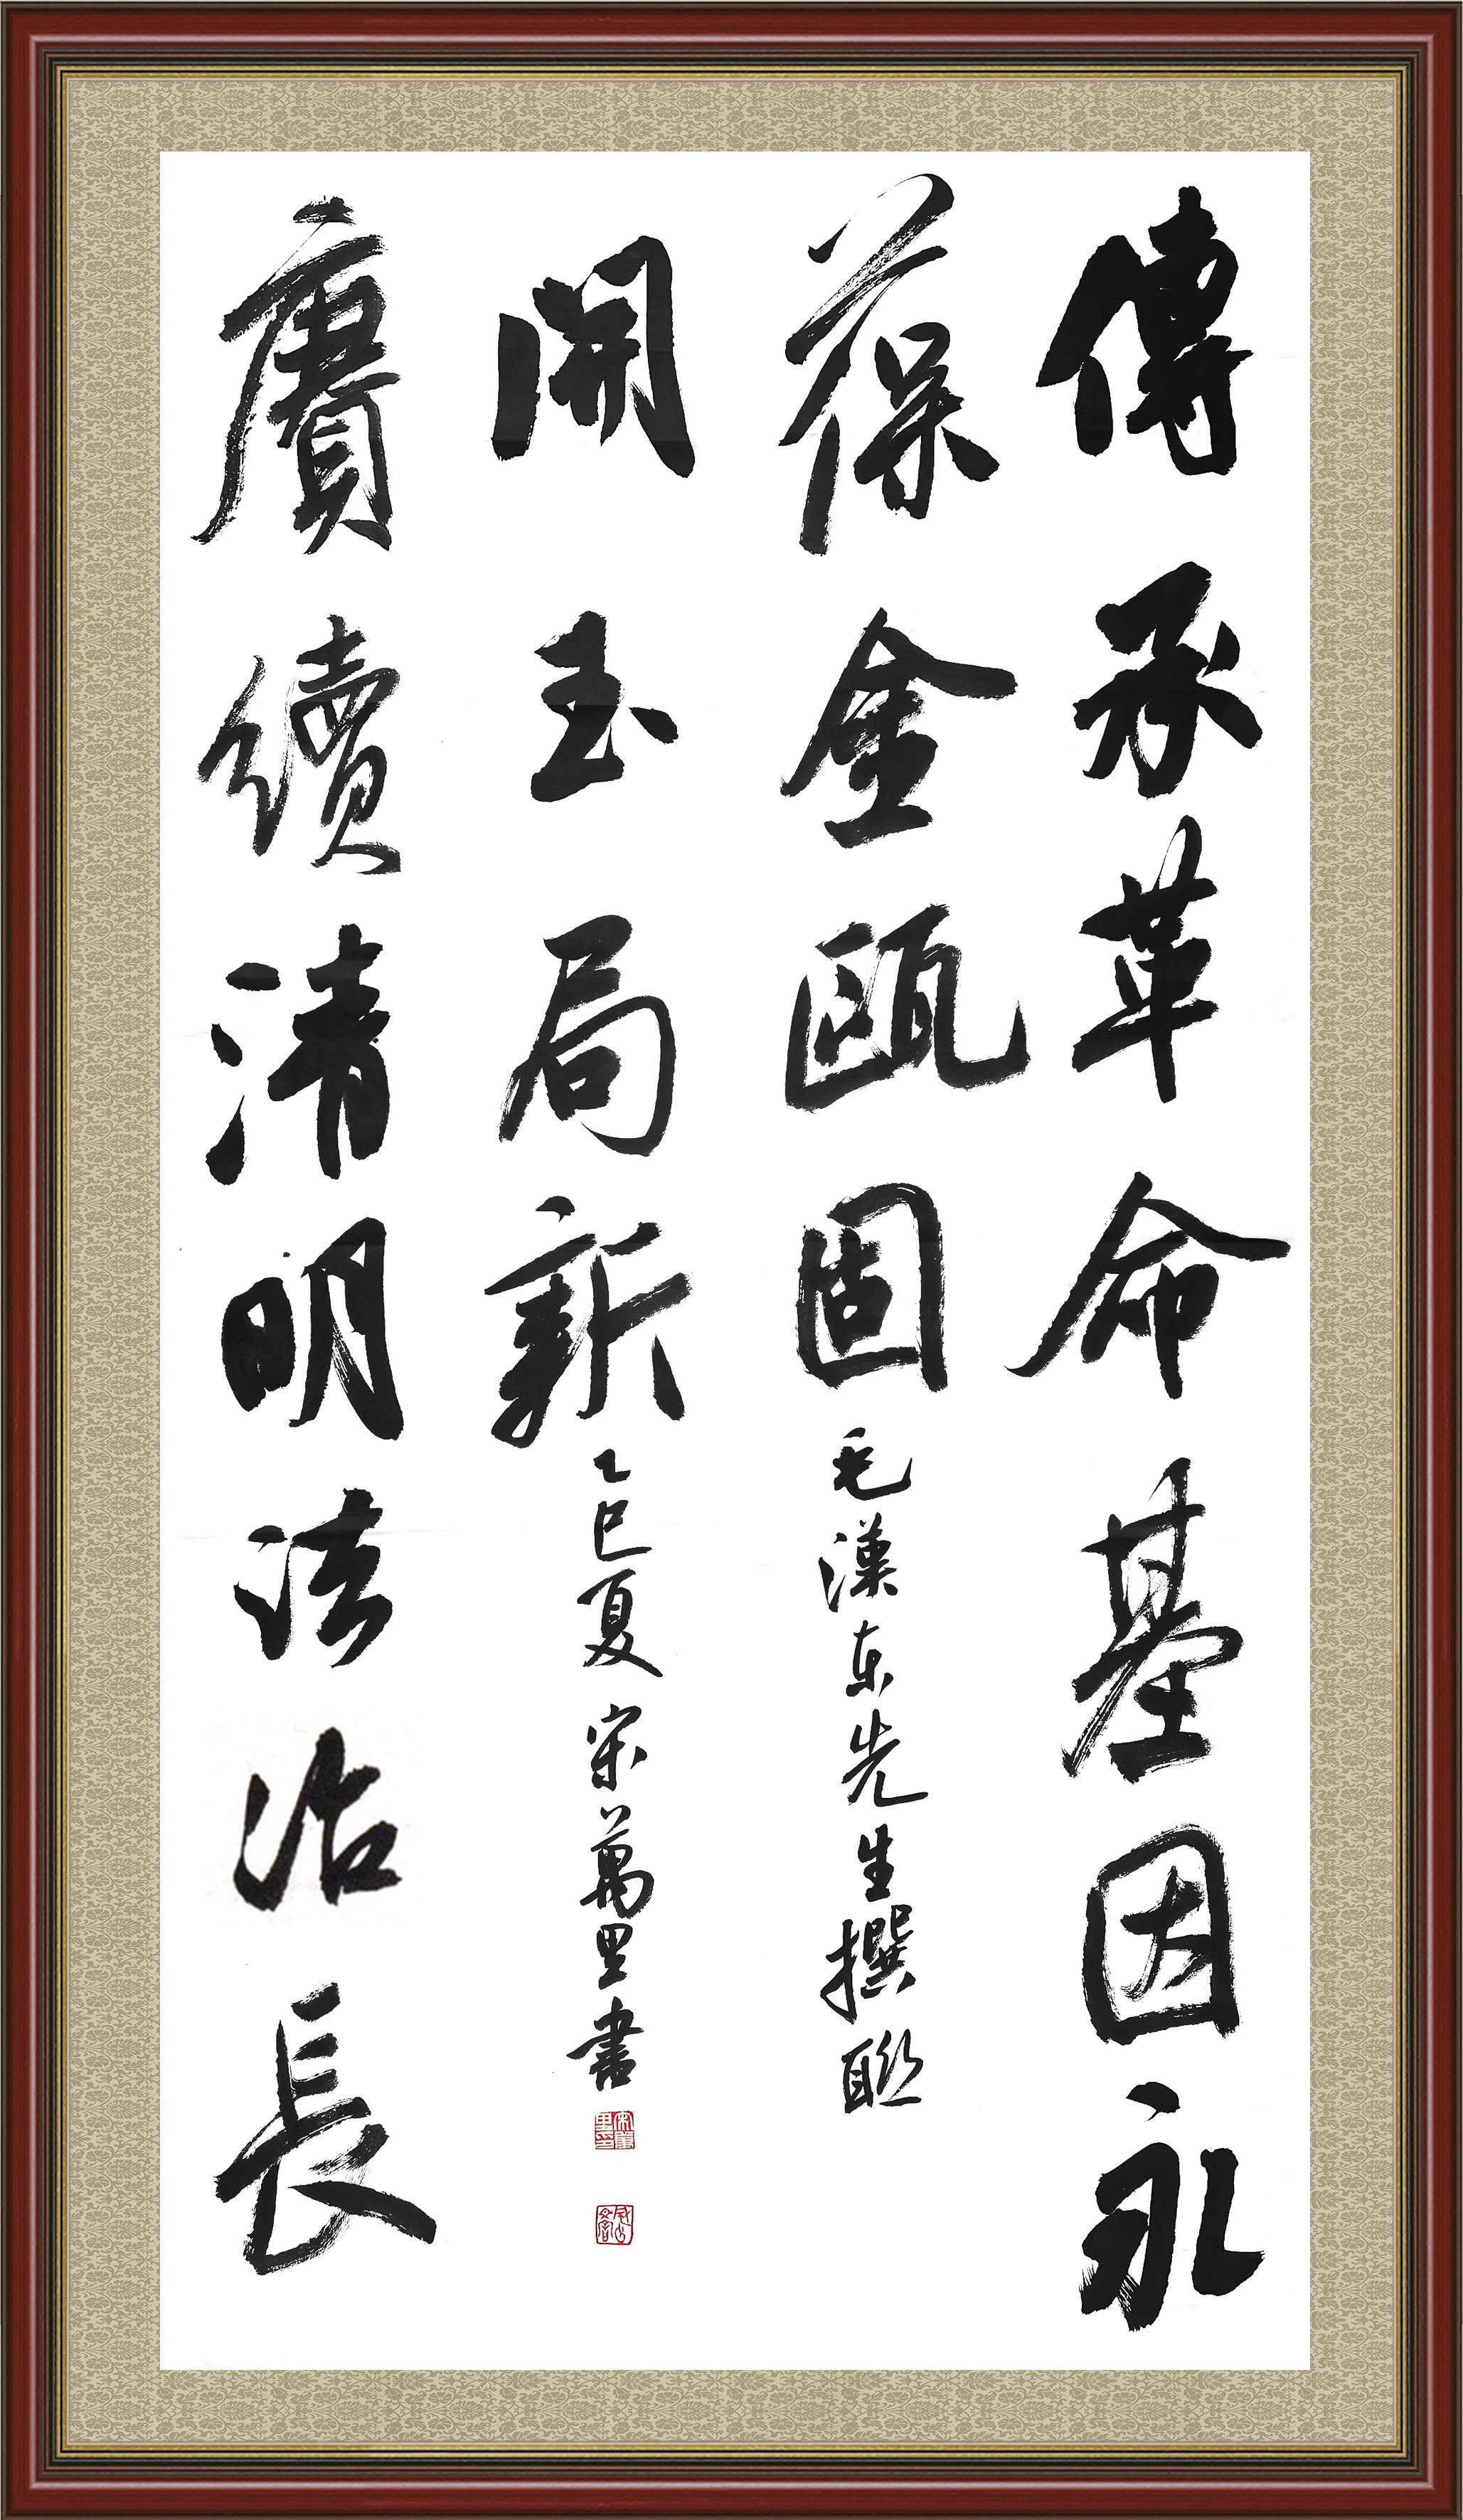 傳承革命基因永
葆金甌固
毛漢東先生撰聯
賡續清明法治長
開玉局新
乙巳夏宋萬里書
宋萬里印